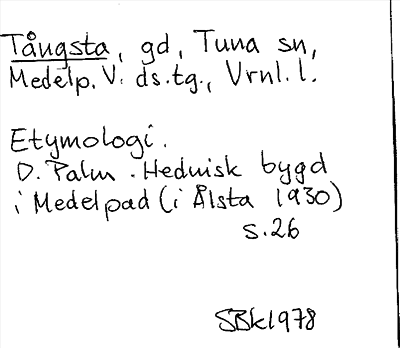 Tångsta, gd, Tuna sn,
Medelp. V. ds. tg., Vrnl. l.
Etymologi.
D. Palm. Hednisk bygd
i Medelpad (i Ålsta 1930)
s. 26
SBk 1978